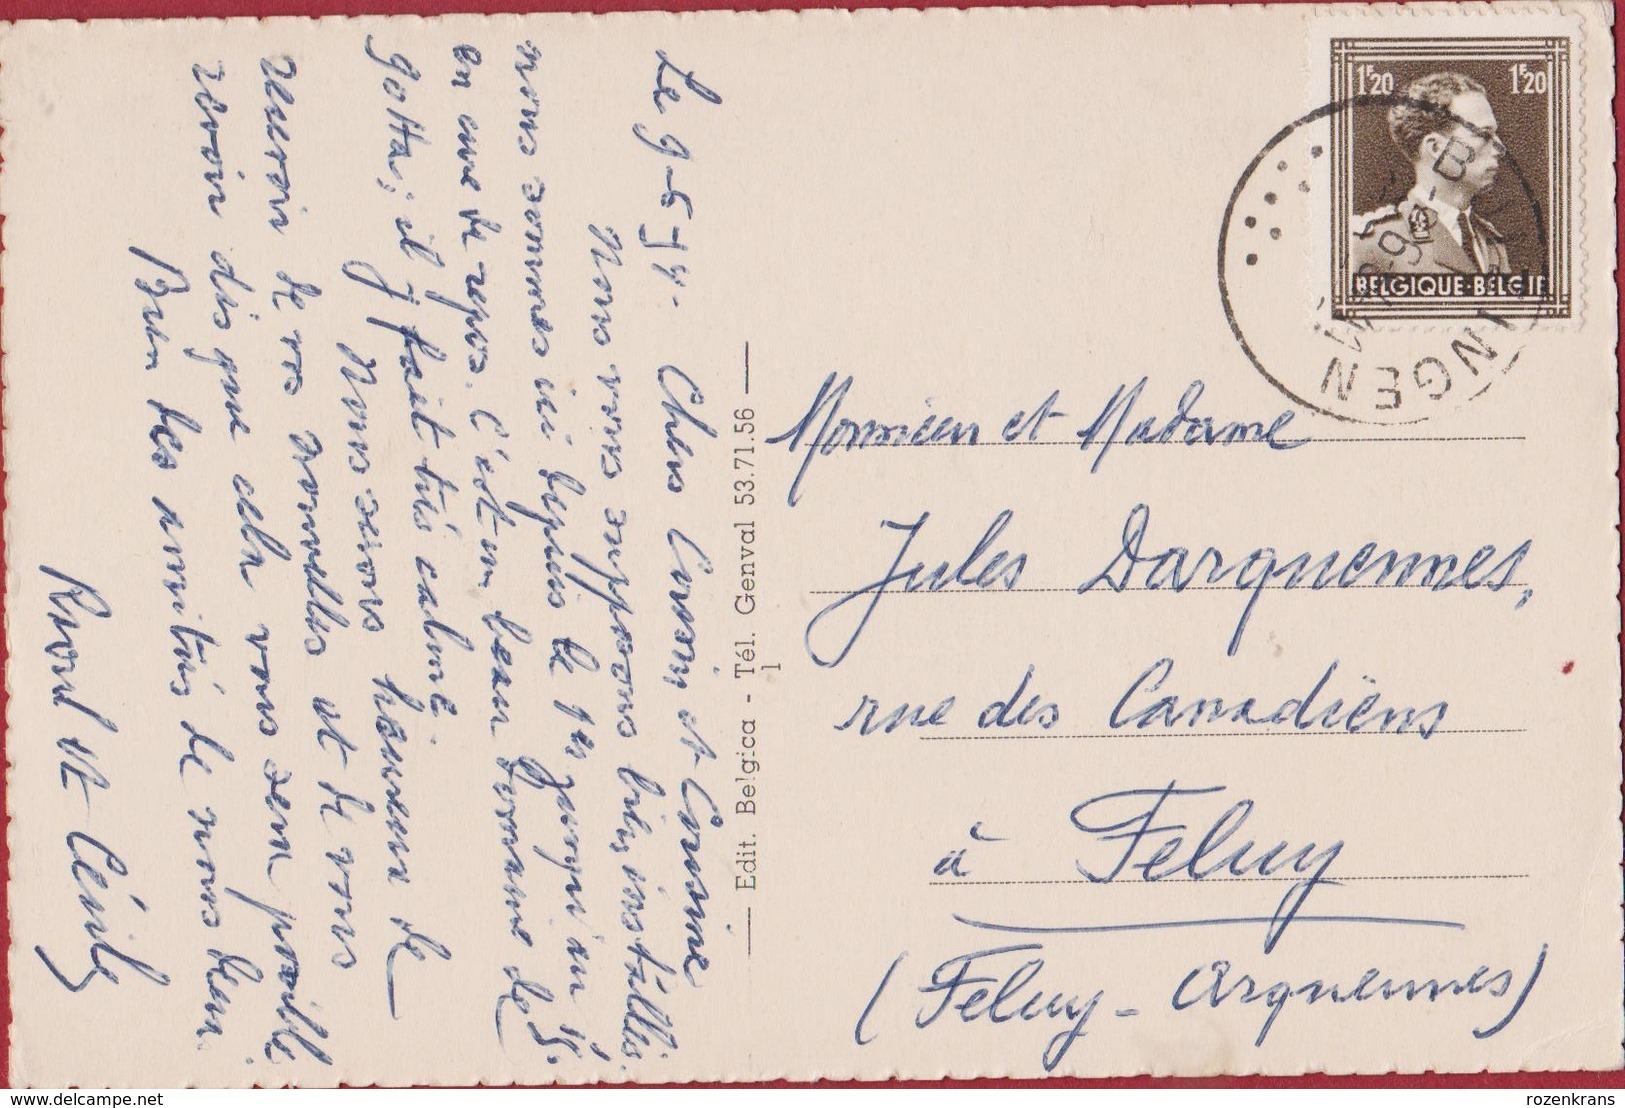 Le 9-6-54. Chers Cousin et Cousine
Nous vous supposons bien installés.
nous sommes ici depuis le 1er jusqu'au 15.
en cure de repos. C'est un beau domaine de
gotha; il y fait très calme.
Nous serons heureux de
recevoir de vos nouvelles et de vous
revoir dis que cela vous sera possible
Bien des amitiés de nous deux
Raoul et Cécile
Edit. Belgica - Tél. Genval 53.71.56
1
1F20 1F20
BELGIQUE-BELGIE
INGEN
Monsieur et Madame
Jules Darquennes,
rue des Canadiens
à Feluy
(Feluy-Arquennes)
delcampe.net
rozenkrans